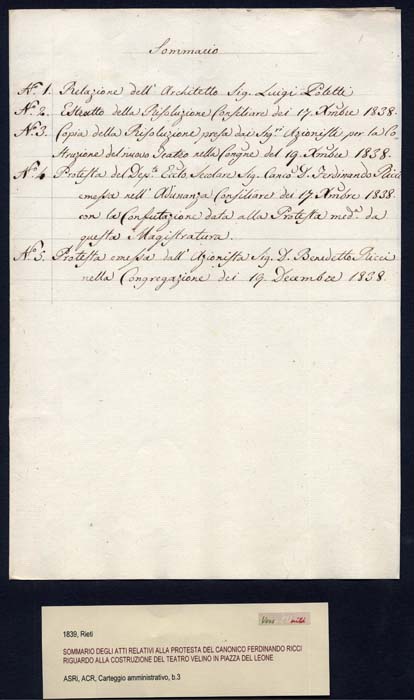 Sommario
N.º 1. Relazione dell'Architetto Sig. Luigi Poletti
N.º 2. Estratto della Risoluzione Consiliare dei 17 Xmbre 1838.
N.º 3. Copia della Risoluzione presa dai Sig.ri Azionisti per la Co-
struzione del nuovo Teatro nella Congne del 19 Xmbre 1838.
N.º 4. Protesta del Dep.º Eccl. Secolare Sig. Canco D. Ferdinando Ricci
emessa nell'Adunanza Consiliare dei 17 Xmbre 1838.
con la Confutazione data alla Protesta med.ª da
questa Magistratura.
N.º 5. Protesta emessa dall'Azionista Sig. D. Benedetto Ricci
nella Congregazione dei 19. Decembre 1838.
1839, Rieti
SOMMARIO DEGLI ATTI RELATIVI ALLA PROTESTA DEL CANONICO FERDINANDO RICCI
RIGUARDO ALLA COSTRUZIONE DEL TEATRO VELINO IN PIAZZA DEL LEONE
ASRi, ACR, Carteggio amministrativo, b.3